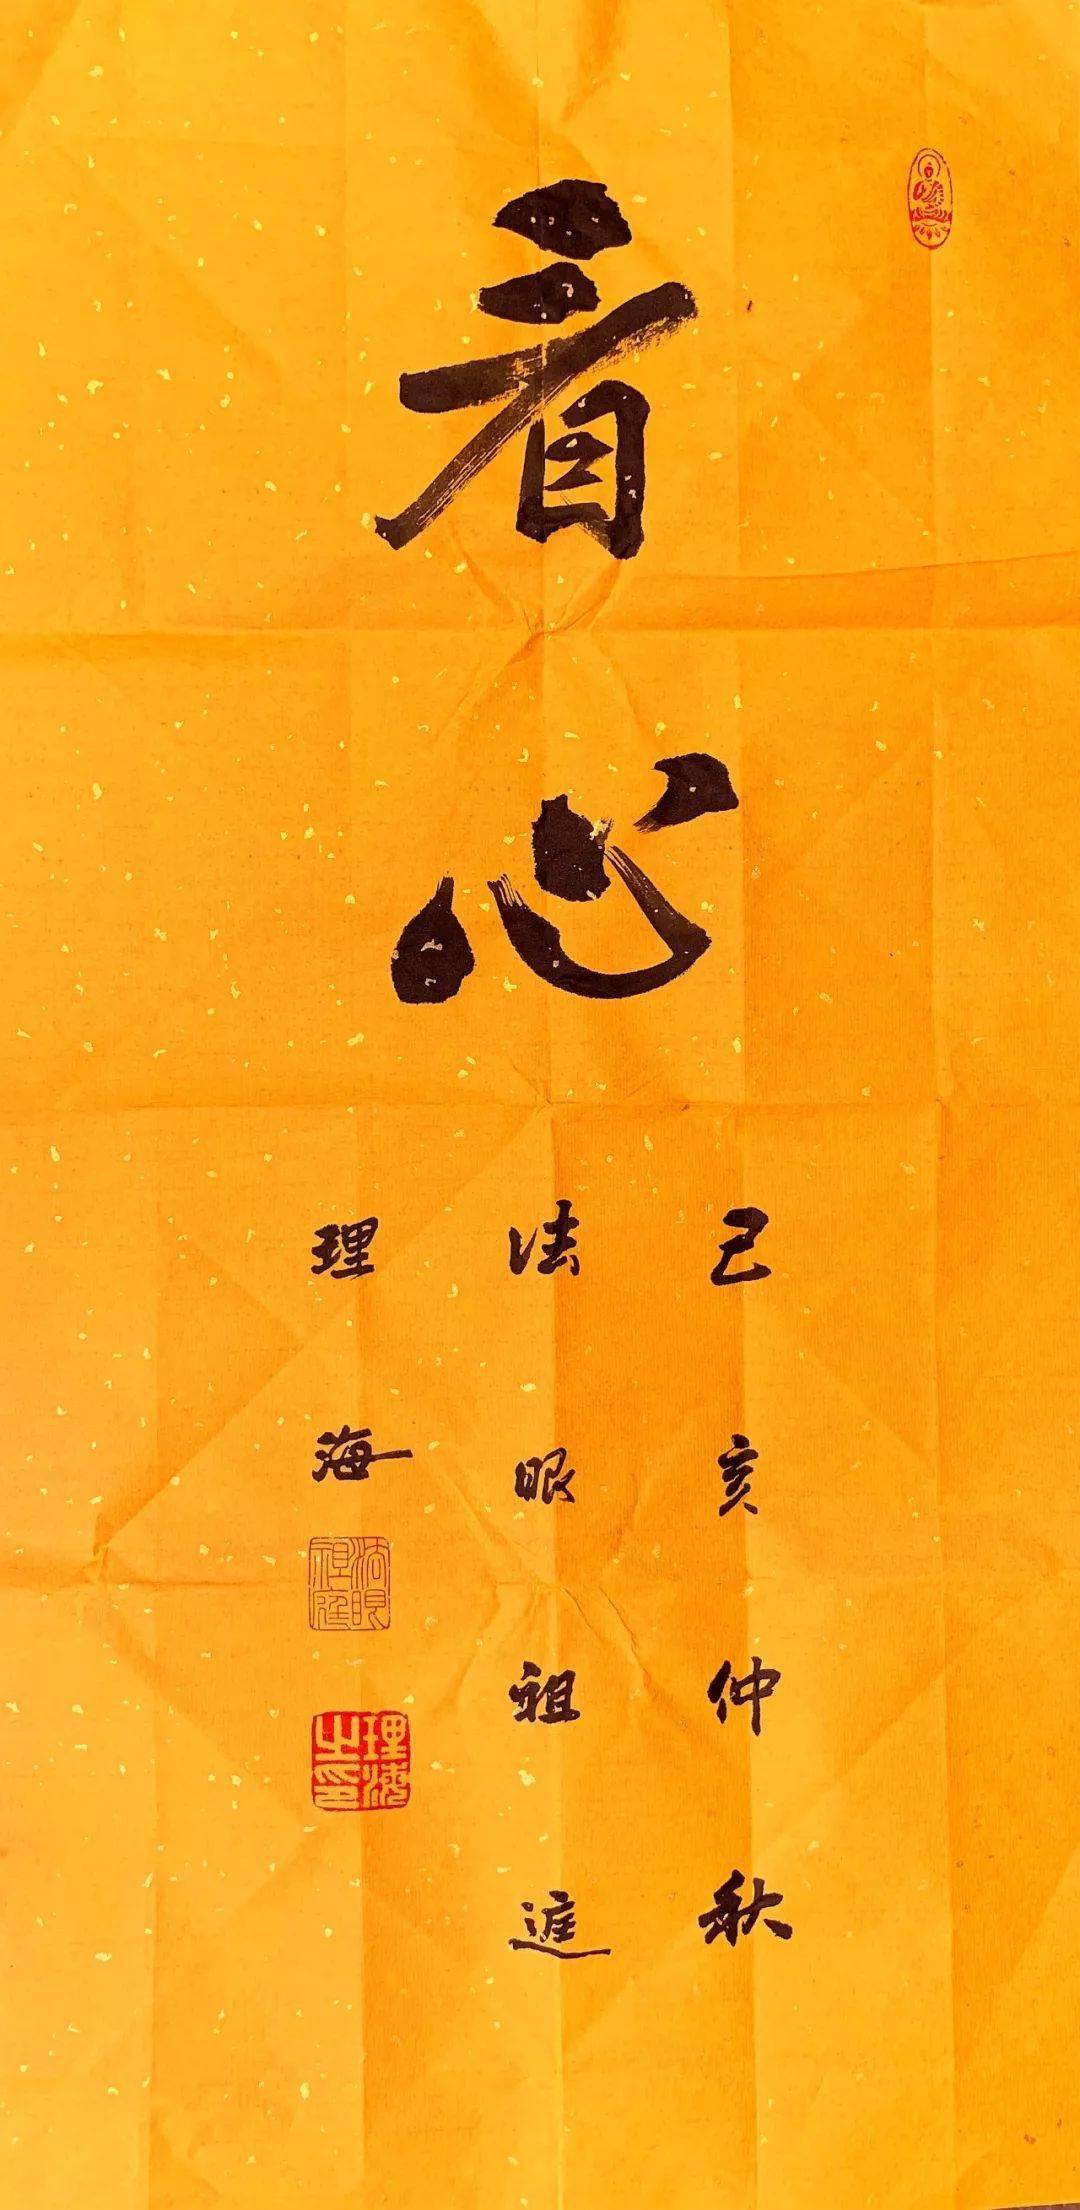 看心
己亥仲秋
法眼祖庭
理海
法眼祖庭
理海之印